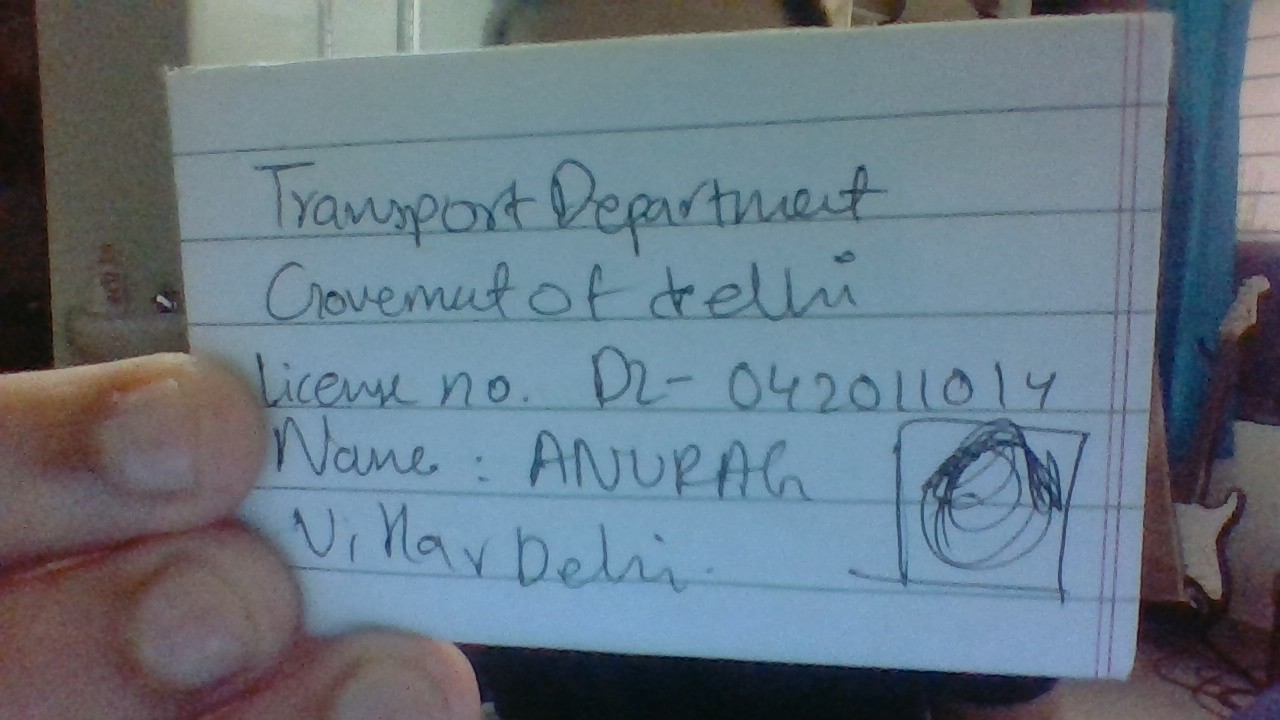 Transport Department
Governmut of delhi
License no. DL- 042011014
Name : ANURAG
Vihar Delhi.